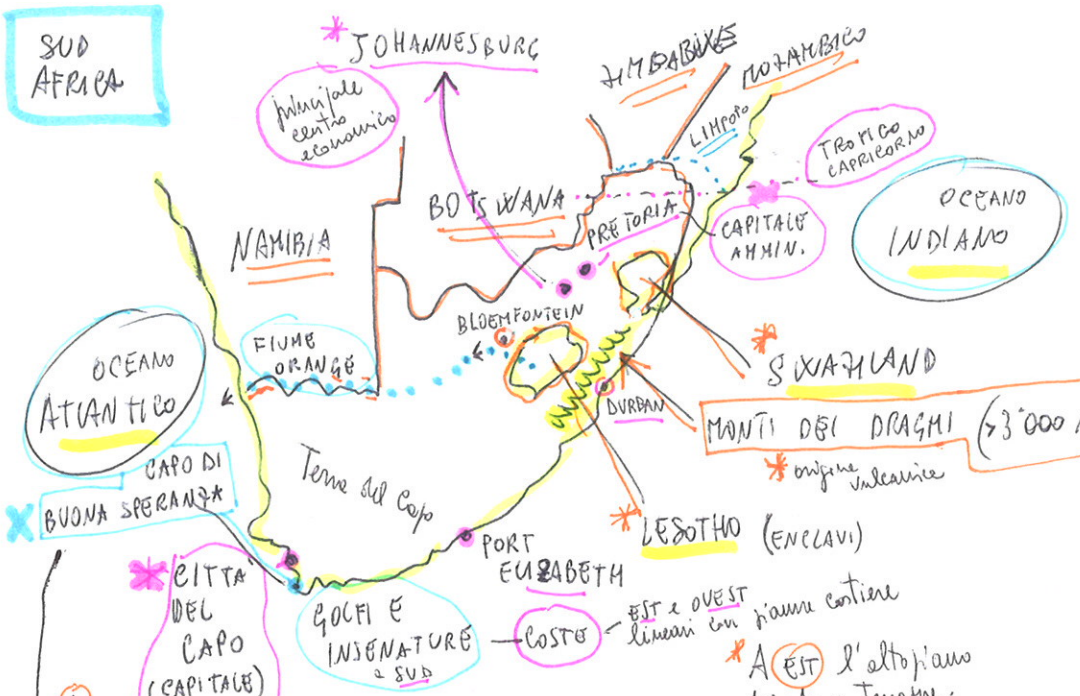 SUD
AFRICA
* JOHANNESBURG
principale
centro
economico
ZIMBABWE
MOZAMBICO
LIMPOPO
TROPICO
CAPRICORNO
BOTSWANA
PRETORIA
CAPITALE
AMMIN.
OCEANO
INDIANO
NAMIBIA
BLOEMFONTEIN
FIUME
ORANGE
OCEANO
ATLANTICO
* SWAZILAND
DURBAN
MONTI DEI DRAGHI (>3'000
* origine
vulcanica
CAPO DI
BUONA SPERANZA
Terra del Capo
* LESOTHO (ENCLAVI)
PORT
ELIZABETH
* CITTÀ
DEL
CAPO
(CAPITALE)
GOLFI E
INSENATURE
a SUD
COSTE
EST e OVEST
lineari con pianure costiere
* A EST l'altopiano